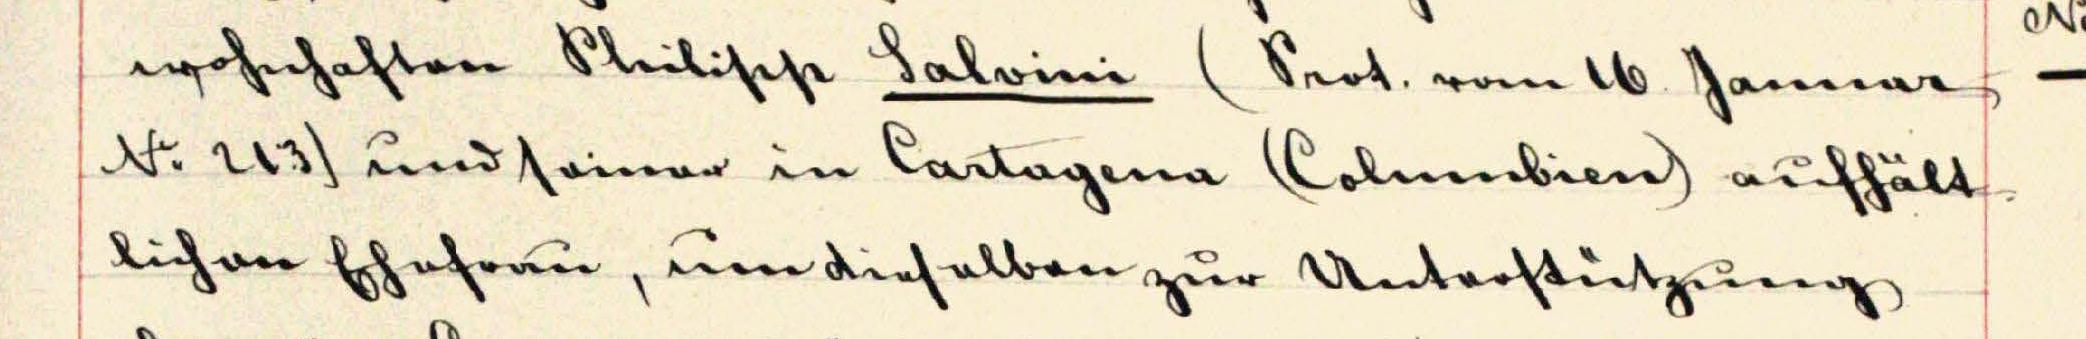 wohnhaften Philipp Salvini (Prot. vom 16. Januar
Nr. 213) und seiner in Cartagena (Columbien) aufhält
lichen Ehefrau, um dieselben zur Unterstützung